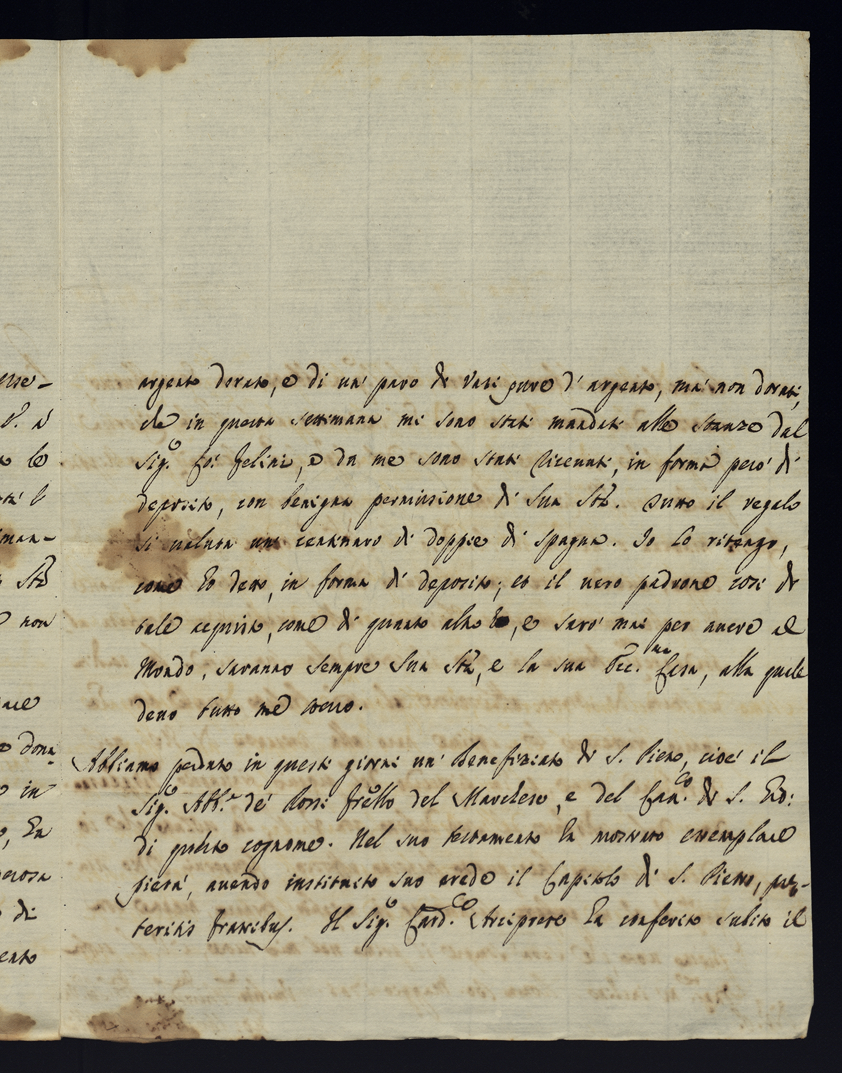 argento dorato, e di un' paro di Vasi pure d' argento, ma non dorati,
che in questa settimana mi sono stati mandati alle stanze dal
Sig.o Felini, e da me sono stati ricevuti, in forma però di
deposito, con benigna permissione di Sua Stà. Tutto il regalo
si valuta un centinaro di doppie di Spagna. Io lo ritengo,
come hò detto, in forma di deposito; et il vero padrone così di
tale acquisto, come di quanto altro hò, e sarò mai per avere al
Mondo, saranno sempre Sua Stà, e la sua Ecc.ma Casa, alla quale
devo tutto me stesso.
Abbiamo perduto in questi giorni un' Benefiziato di S. Pietro, cioè il
Sig.o Abb.e de' Rossi frello del Marchese, e del Can.co di S. Pietro
di questo cognome. Nel suo testamento ha mostrato esemplare
pietà, avendo instituito suo erede il Capitolo di S. Pietro, præ-
teritis fratribus. Il Sig.o Card. Arciprete ha conferito subito il
use-
P. a
le
l'
man-
Stà
non
dona-
in
ha
di